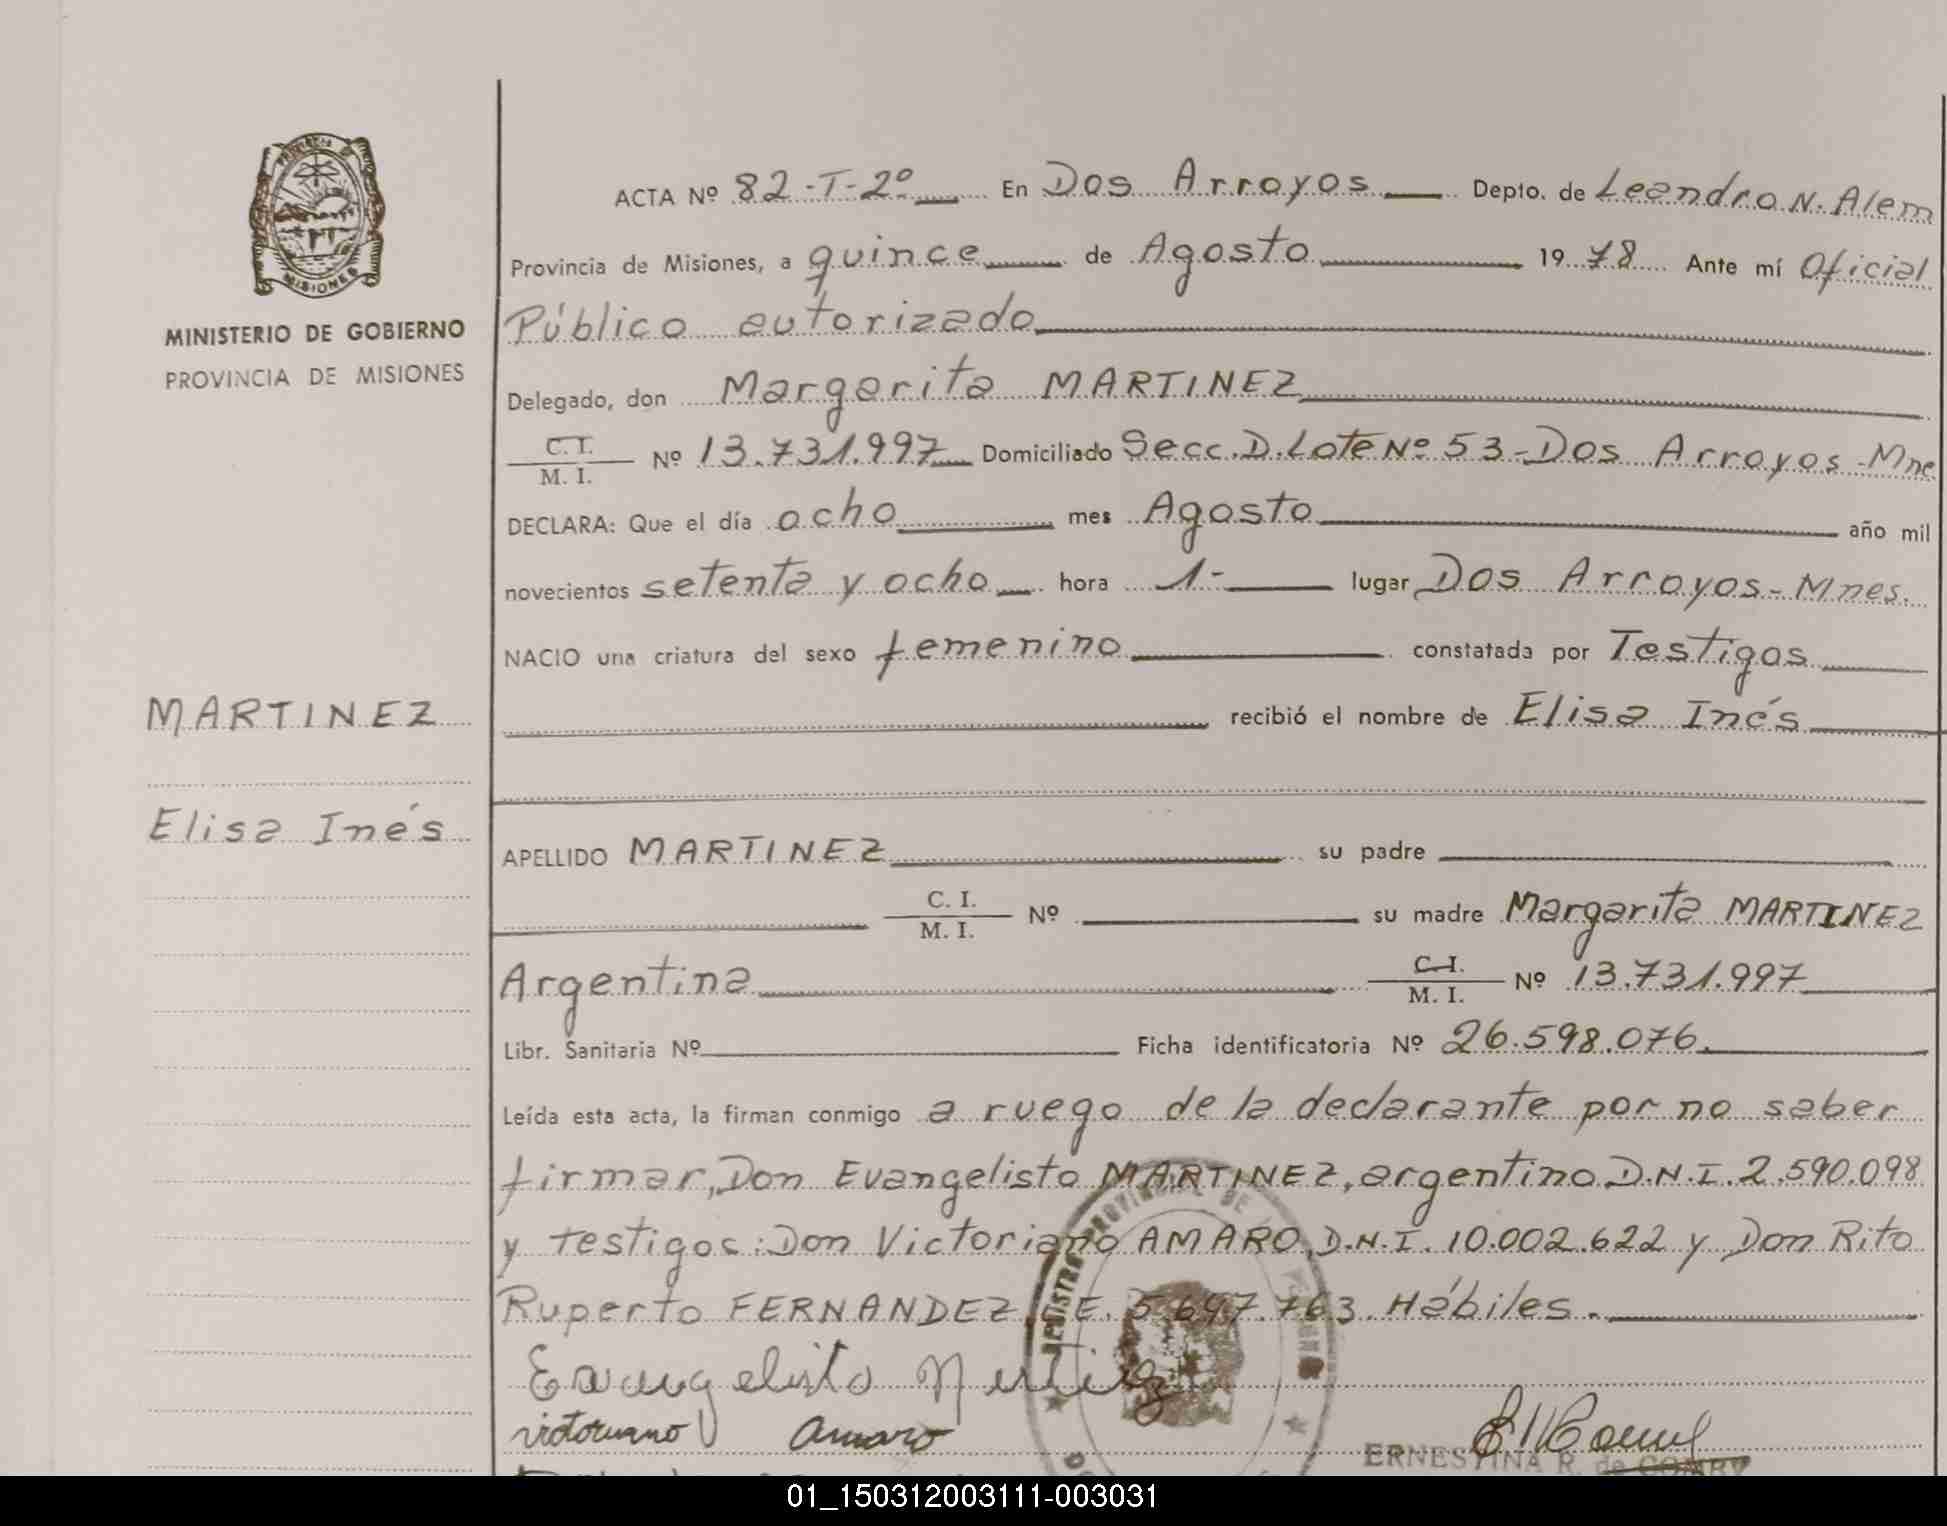 PROVINCIA DE MISIONES
MINISTERIO DE GOBIERNO
PROVINCIA DE MISIONES
MARTINEZ
Elisa Inés
ACTA Nº 82-T-2º En Dos Arroyos Depto. de Leandro N. Alem
Provincia de Misiones, a quince de Agosto 1978 Ante mí Oficial
Público autorizado
Delegado, don Margarita MARTINEZ
C. I.
M. I. Nº 13.731.997 Domiciliado Secc. D. Lote Nº 53-Dos Arroyos-Mne
DECLARA: Que el día ocho mes Agosto año mil
novecientos setenta y ocho hora 1- lugar Dos Arroyos-Mnes.
NACIO una criatura del sexo femenino constatada por Testigos
recibió el nombre de Elisa Inés
APELLIDO MARTINEZ su padre
C. I.
M. I. Nº su madre Margarita MARTINEZ
Argentina C. I.
M. I. Nº 13.731.997
Libr. Sanitaria Nº Ficha identificatoria Nº 26.598.076.
Leída esta acta, la firman conmigo a ruego de la declarante por no saber
firmar, Don Evangelisto MARTINEZ, argentino D.N.I. 2.590.098
y testigos: Don Victoriano AMARO, D.N.I. 10.002.622 y Don Rito
Ruperto FERNANDEZ, E. 5.697.763. Hábiles.
Evangelisto
victoriano Amaro
ERNESTINA R. de
01_150312003111-003031